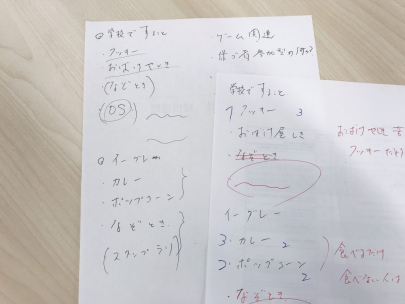 学校ですること
・クッキー
・おばけやしき
(なぞとき)
OS
・ゲーム関連
イーグレ
・カレー
・ポップコーン
・なぞとき
(スタンプラリ
学校ですること
1 クッキー 3
・おばけ屋しき
・なぞとき
イーグレ
3・カレー 2
2・ポップコーン 2
・なぞとき
おばけや
クッキー
食べるだけ
食べない人は